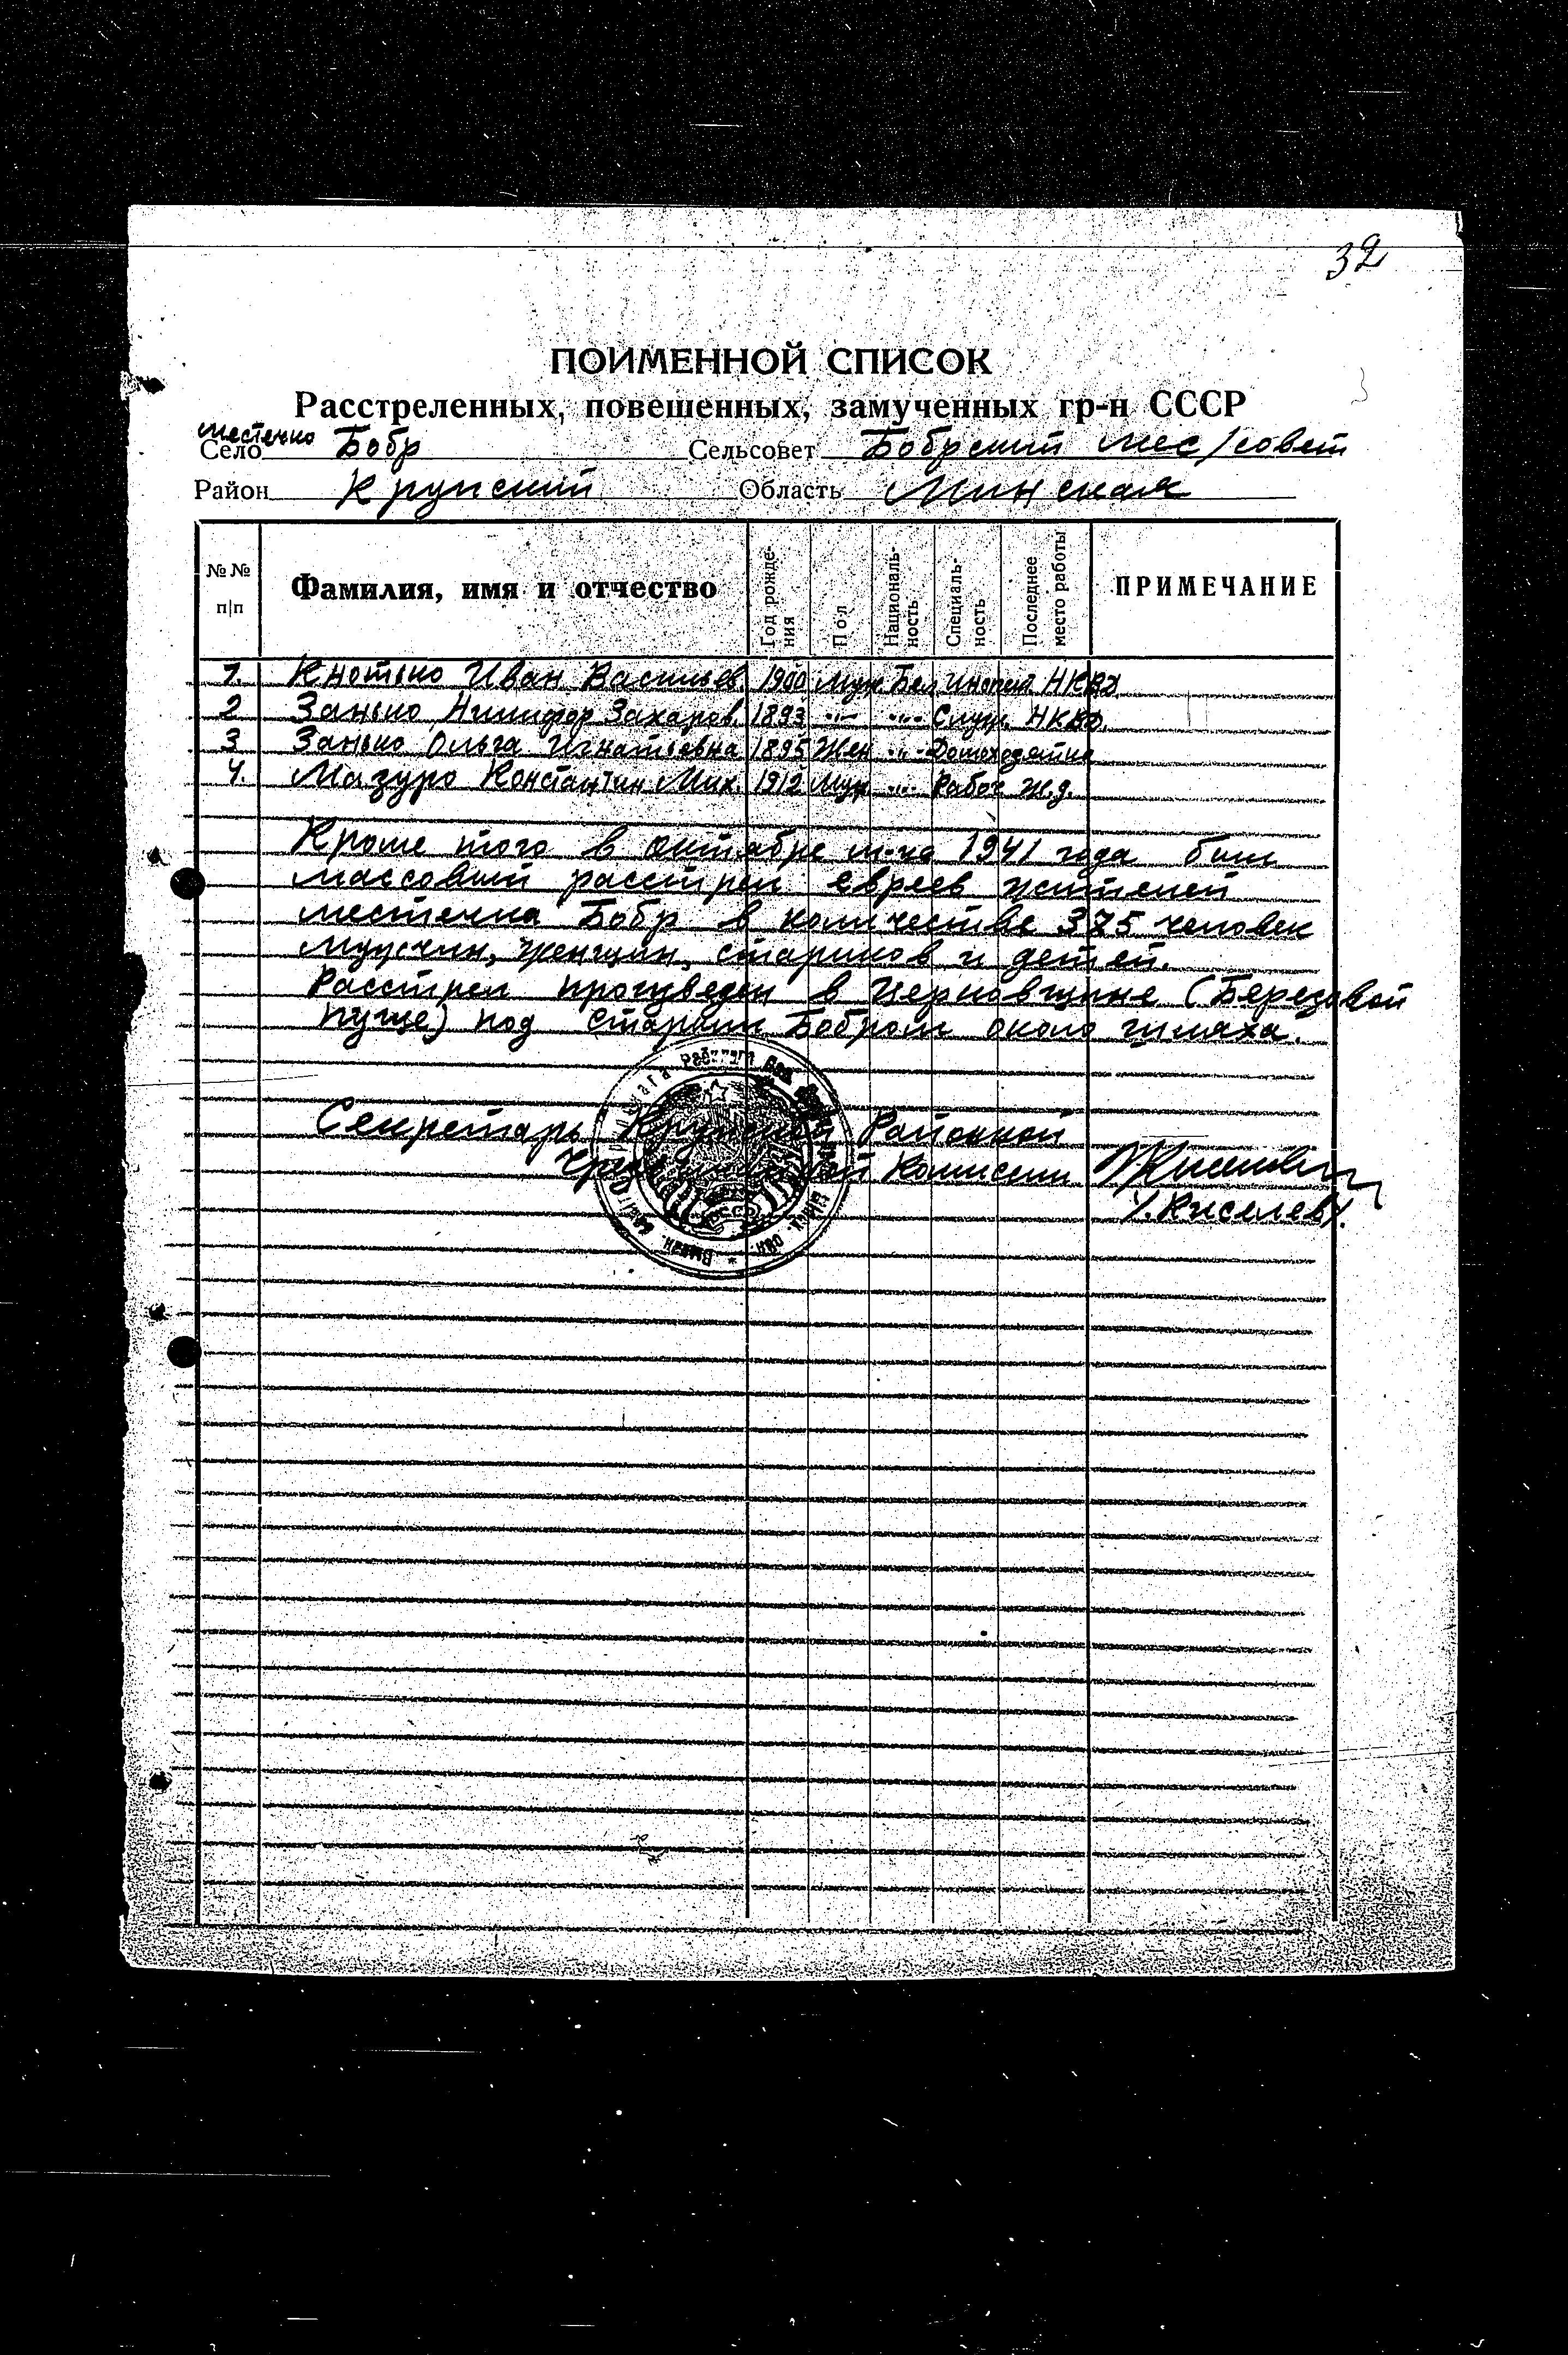 32
ПОИМЕННОЙ СПИСОК
Расстреленных, повешенных, замученных гр-н СССР
местечко
Село Бобр Сельсовет Бобрский мес/совет
Район Крупский Область Минская
№№ п|п Фамилия, имя и отчество Год рожде-ния Пол Националь-ность Специаль-ность Последнее место работы ПРИМЕЧАНИЕ
1. Иван Васильев. 1900 Муж Бел Инспек. НКВД
2 Занько Никифор Захаров. 1893 -"- -"- Служ. НКВД.
3 Занько Ольга Игнатьевна 1895 Жен -"- Домохозяйка
4. Мазуро Константин Мих. 1912 Муж -"- Рабоч ж.д.
Кроме того в октябре м-це 1941 года был
массовый расстрел евреев жителей
местечка Бобр в количестве человек
мужчин, женщин, стариков и детей.
Расстрел произведен в (Березовой
пуще) под старым Бобром около шляха.
Секретарь Крупской Районной
Чрезвычайной Комиссии
/.Киселев/.